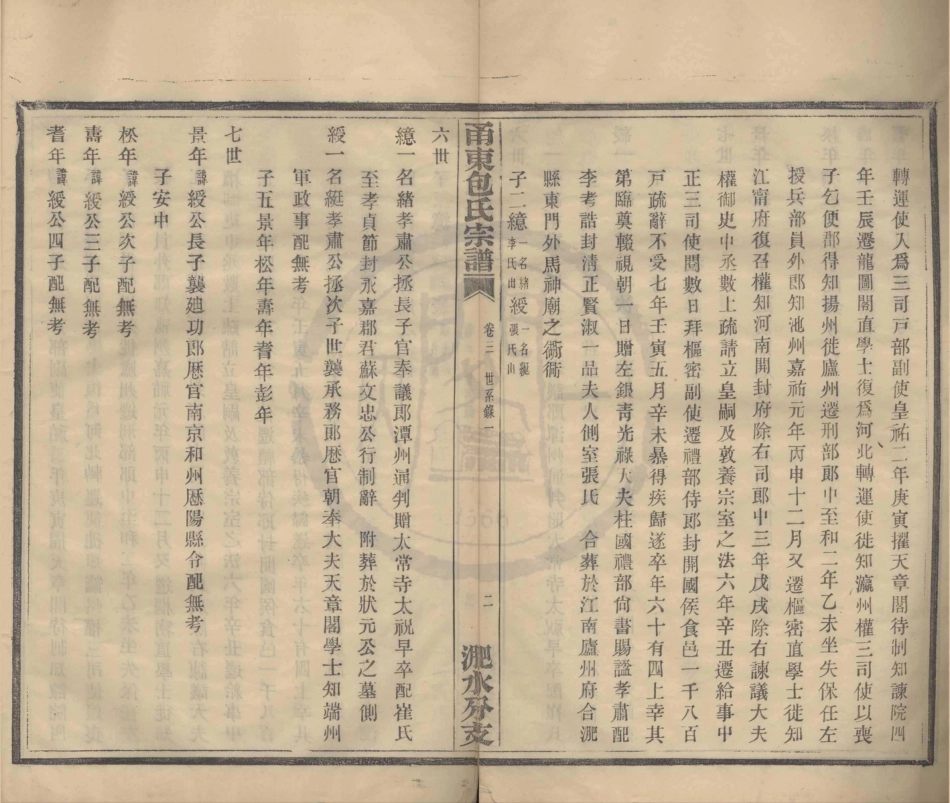 轉運使入爲三司戸部副使皇祐二年庚寅擢天章閣待制知諫院四
年壬辰遷龍圖閣直學士復爲河北轉運使徙知瀛州權三司使以喪
子乞便郡得知揚州徙廬州遷刑部郎中至和二年乙未坐失保任左
授兵部員外郎知池州嘉祐元年丙申十二月又遷樞密直學士徙知
江甯府復召權知河南開封府除右司郎中三年戊戌除右諫議大夫
權御史中丞數上疏請立皇嗣及敦養宗室之法六年辛丑遷給事中
正三司使閱數日拜樞密副使遷禮部侍郎封開國侯食邑一千八百
戸疏辭不受七年壬寅五月辛未暴得疾歸遂卒年六十有四上幸其
第臨奠輟視朝一日贈左銀青光祿大夫柱國禮部尙書賜謚孝肅配
李考誥封淸正賢淑一品夫人側室張氏 合葬於江南廬州府合淝
縣東門外馬神廟之衖衕
子二繶一名緒李氏出綬一名綖張氏出
甬東包氏宗譜 卷三 世系錄一 二 淝水分支
六世
繶一名緒孝肅公拯長子官奉議郎潭州通判贈太常寺太祝早卒配崔氏
至孝貞節封永嘉郡君蘇文忠公行制辭 附葬於狀元公之墓側
綬一名綖孝肅公拯次子世襲承務郎歴官朝奉大夫天章閣學士知端州
軍政事配無考
子五景年松年壽年耆年彭年
七世
景年諱綬公長子襲廸功郎歴官南京和州歴陽縣令配無考
子安中
松年諱綬公次子配無考
壽年諱綬公三子配無考
耆年諱綬公四子配無考